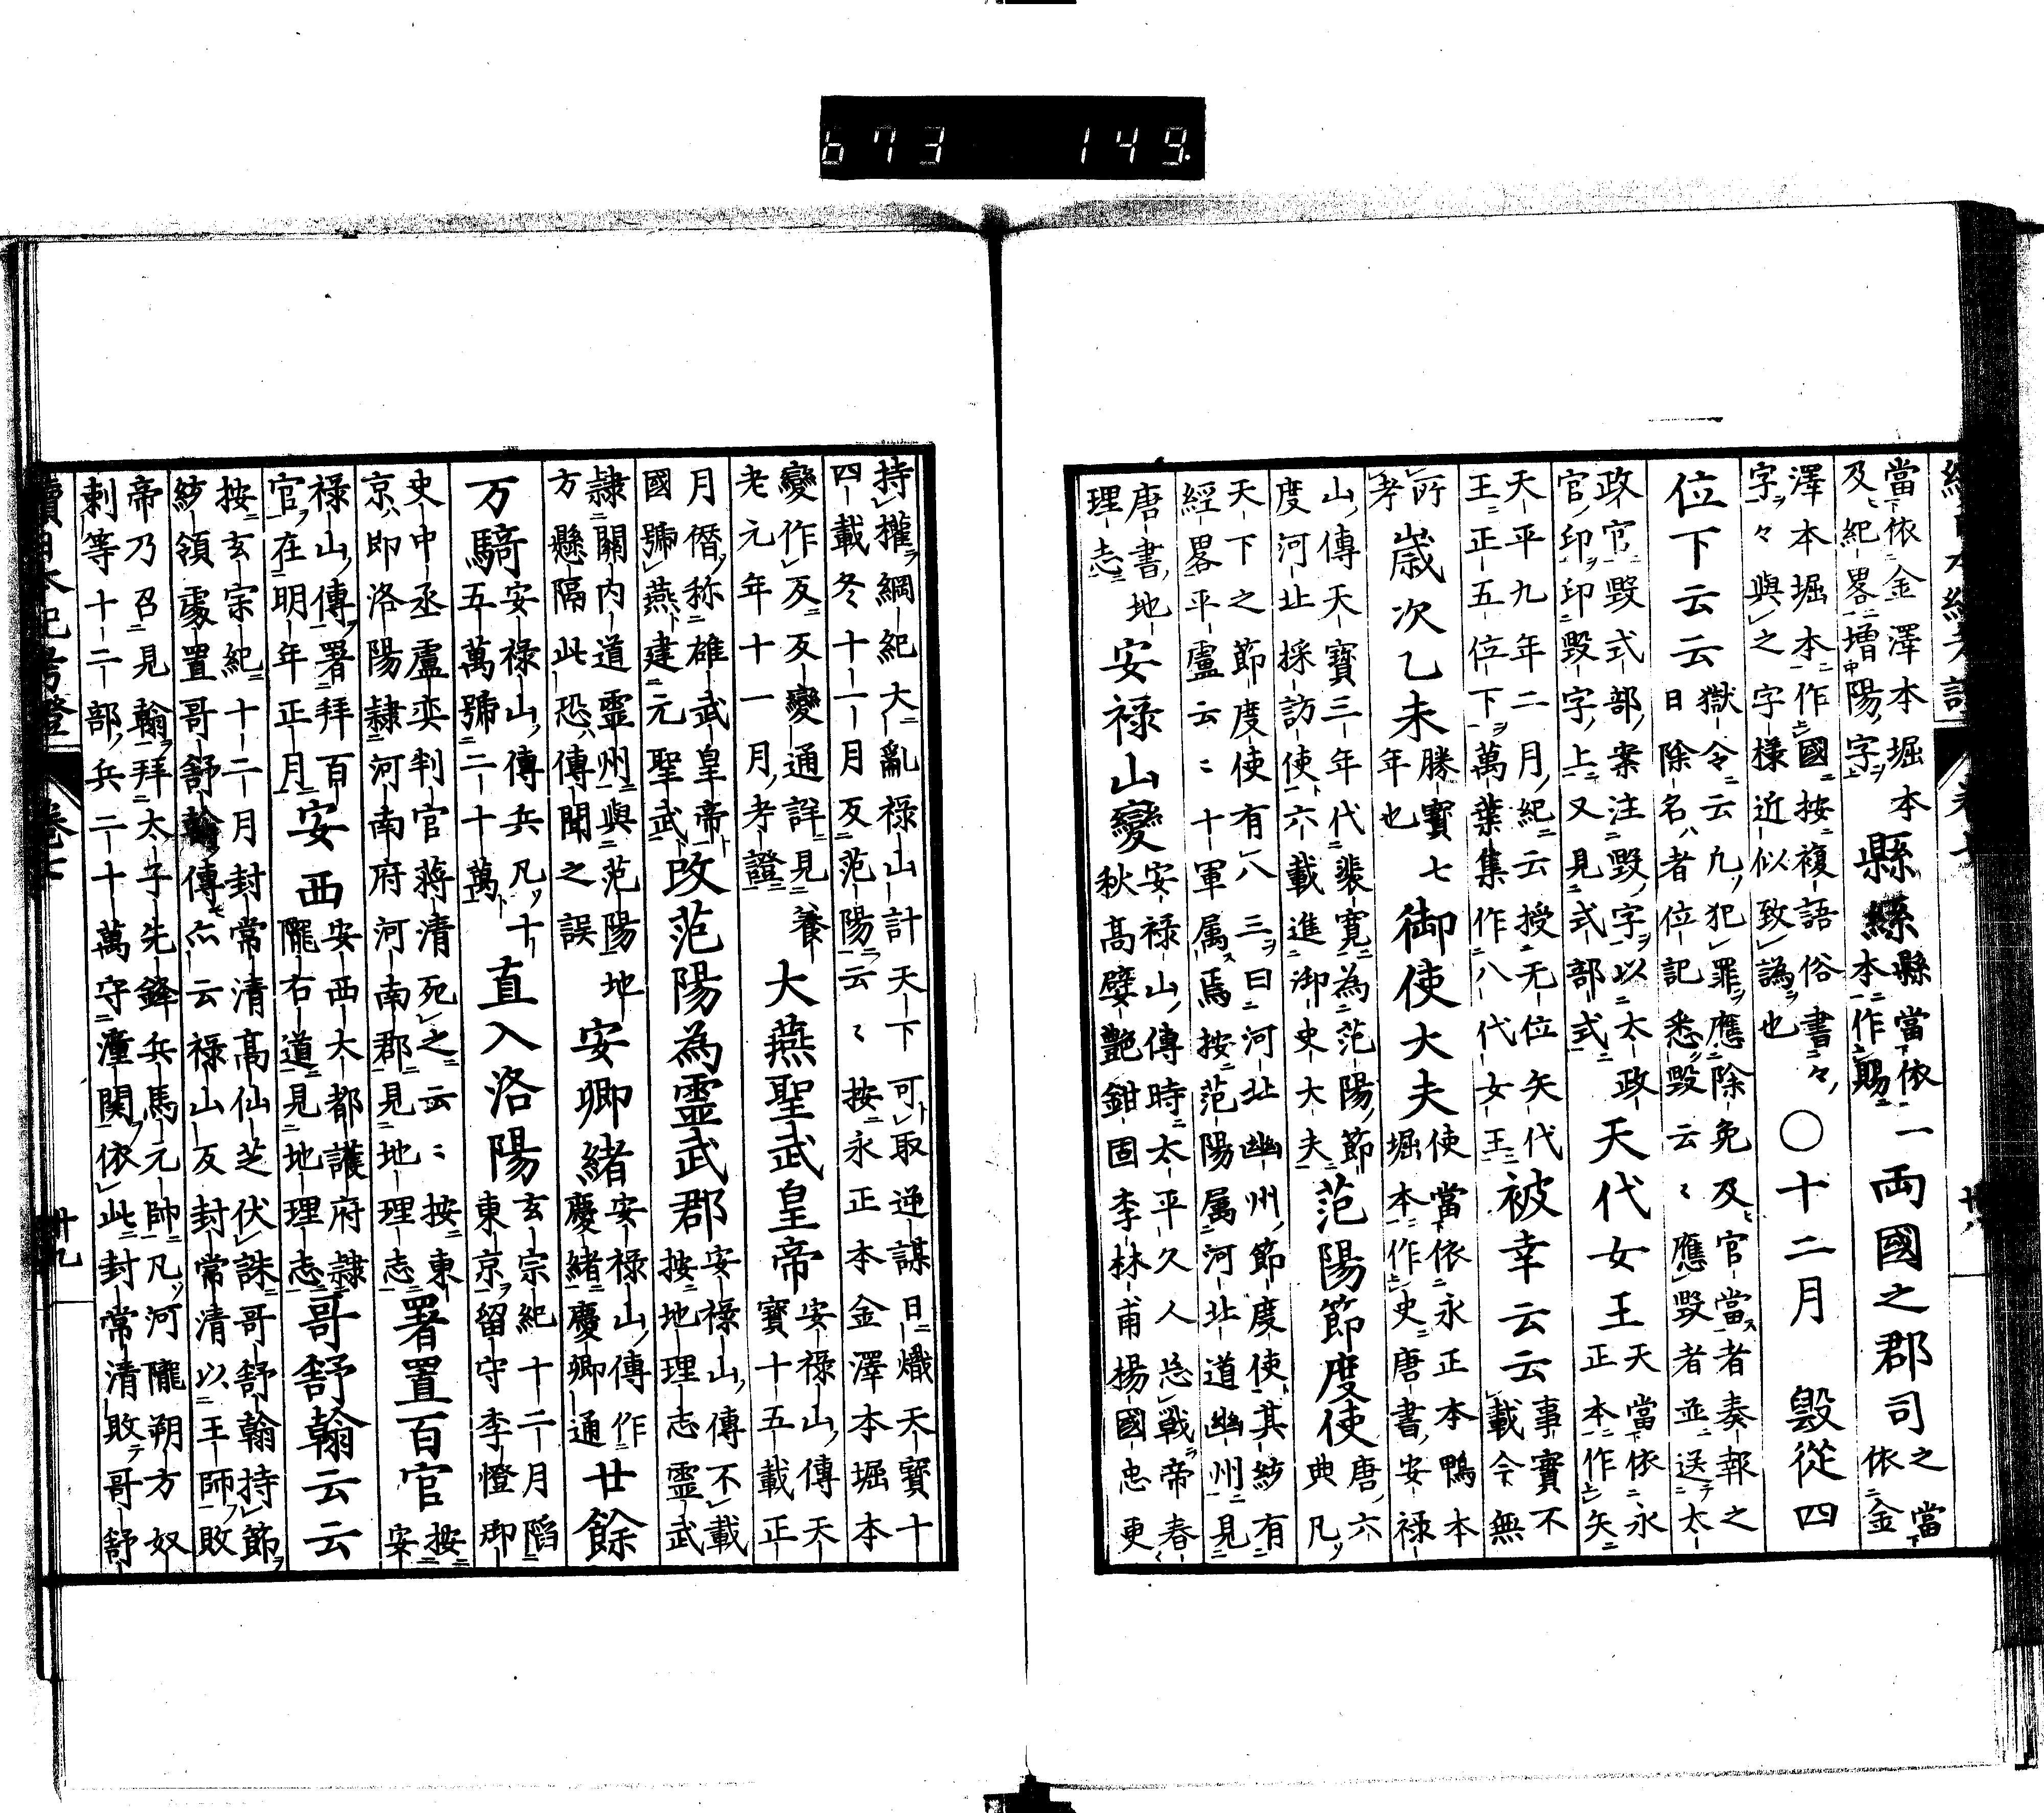 673 149
當依金澤本堀本
及紀畧增陽字
縣
縣當依一
本作賜
両國之郡司
之當
依金
澤本堀本作國按複語俗書々
字々與之字様近似致譌也
○十二月
毀従四
位下云云
獄令云凡犯罪應除免及官當者奏報之
日除名者位記悉毀云々應毀者並送太
政官毀式部案注毀字以太政
官印印毀字上又見式部式
天代女王
天當依永
正本作矢
天平九年二月紀云授无位矢代
王正五位下萬葉集作八代女王
被幸云云
事實不
載今無
所
考
歳次乙未
勝寶七
年也
御使大夫
使當依永正本鴨本
堀本作史唐書安禄
山傳天寶三年代裴寛為范陽節
度河北採訪使六載進御史大夫
范陽節度使
唐六
典凡
天下之節度使有八三曰河北幽州節度使其紗有
經畧平盧云々十軍属焉按范陽属河北道幽州見
唐書地
理志
安禄山變
安禄山傳時太平久人忘戦帝春
秋高嬖艶鉗固李林甫楊國忠更
持權綱紀大亂禄山計天下可取逆謀日熾天寶十
四載冬十一月反范陽云々按永正本金澤本堀本
變作反反變通詳見養
老元年十一月考證
大燕聖武皇帝
安禄山傳天
寶十五載正
月僭称雄武皇帝
國號燕建元聖武
改范陽為靈武郡
安禄山傳不載
按地理志靈武
隷關内道靈州與范陽地
方懸隔此恐傳聞之誤
安卿緒
安禄山傳作
慶緒慶卿通
廿餘
万騎
安禄山傳兵凡十
五萬號二十萬
直入洛陽
玄宗紀十二月陷
東京留守李憕御
史中丞盧奕判官蔣清死之云々按東
京即洛陽隷河南府河南郡見地理志
署置百官
按
安
禄山傳署拜百
官在明年正月
安西
安西大都護府隷
隴右道見地理志
哥舒翰云云
按玄宗紀十二月封常清高仙芝伏誅哥舒翰持節
紗領處置哥舒翰傳亦云禄山反封常清以王師敗
帝乃召見翰拜太子先鋒兵馬元帥凡河隴朔方奴
剌等十二部兵二十萬守潼関依此封常清敗哥舒
續日本紀考證
巻七
廿九